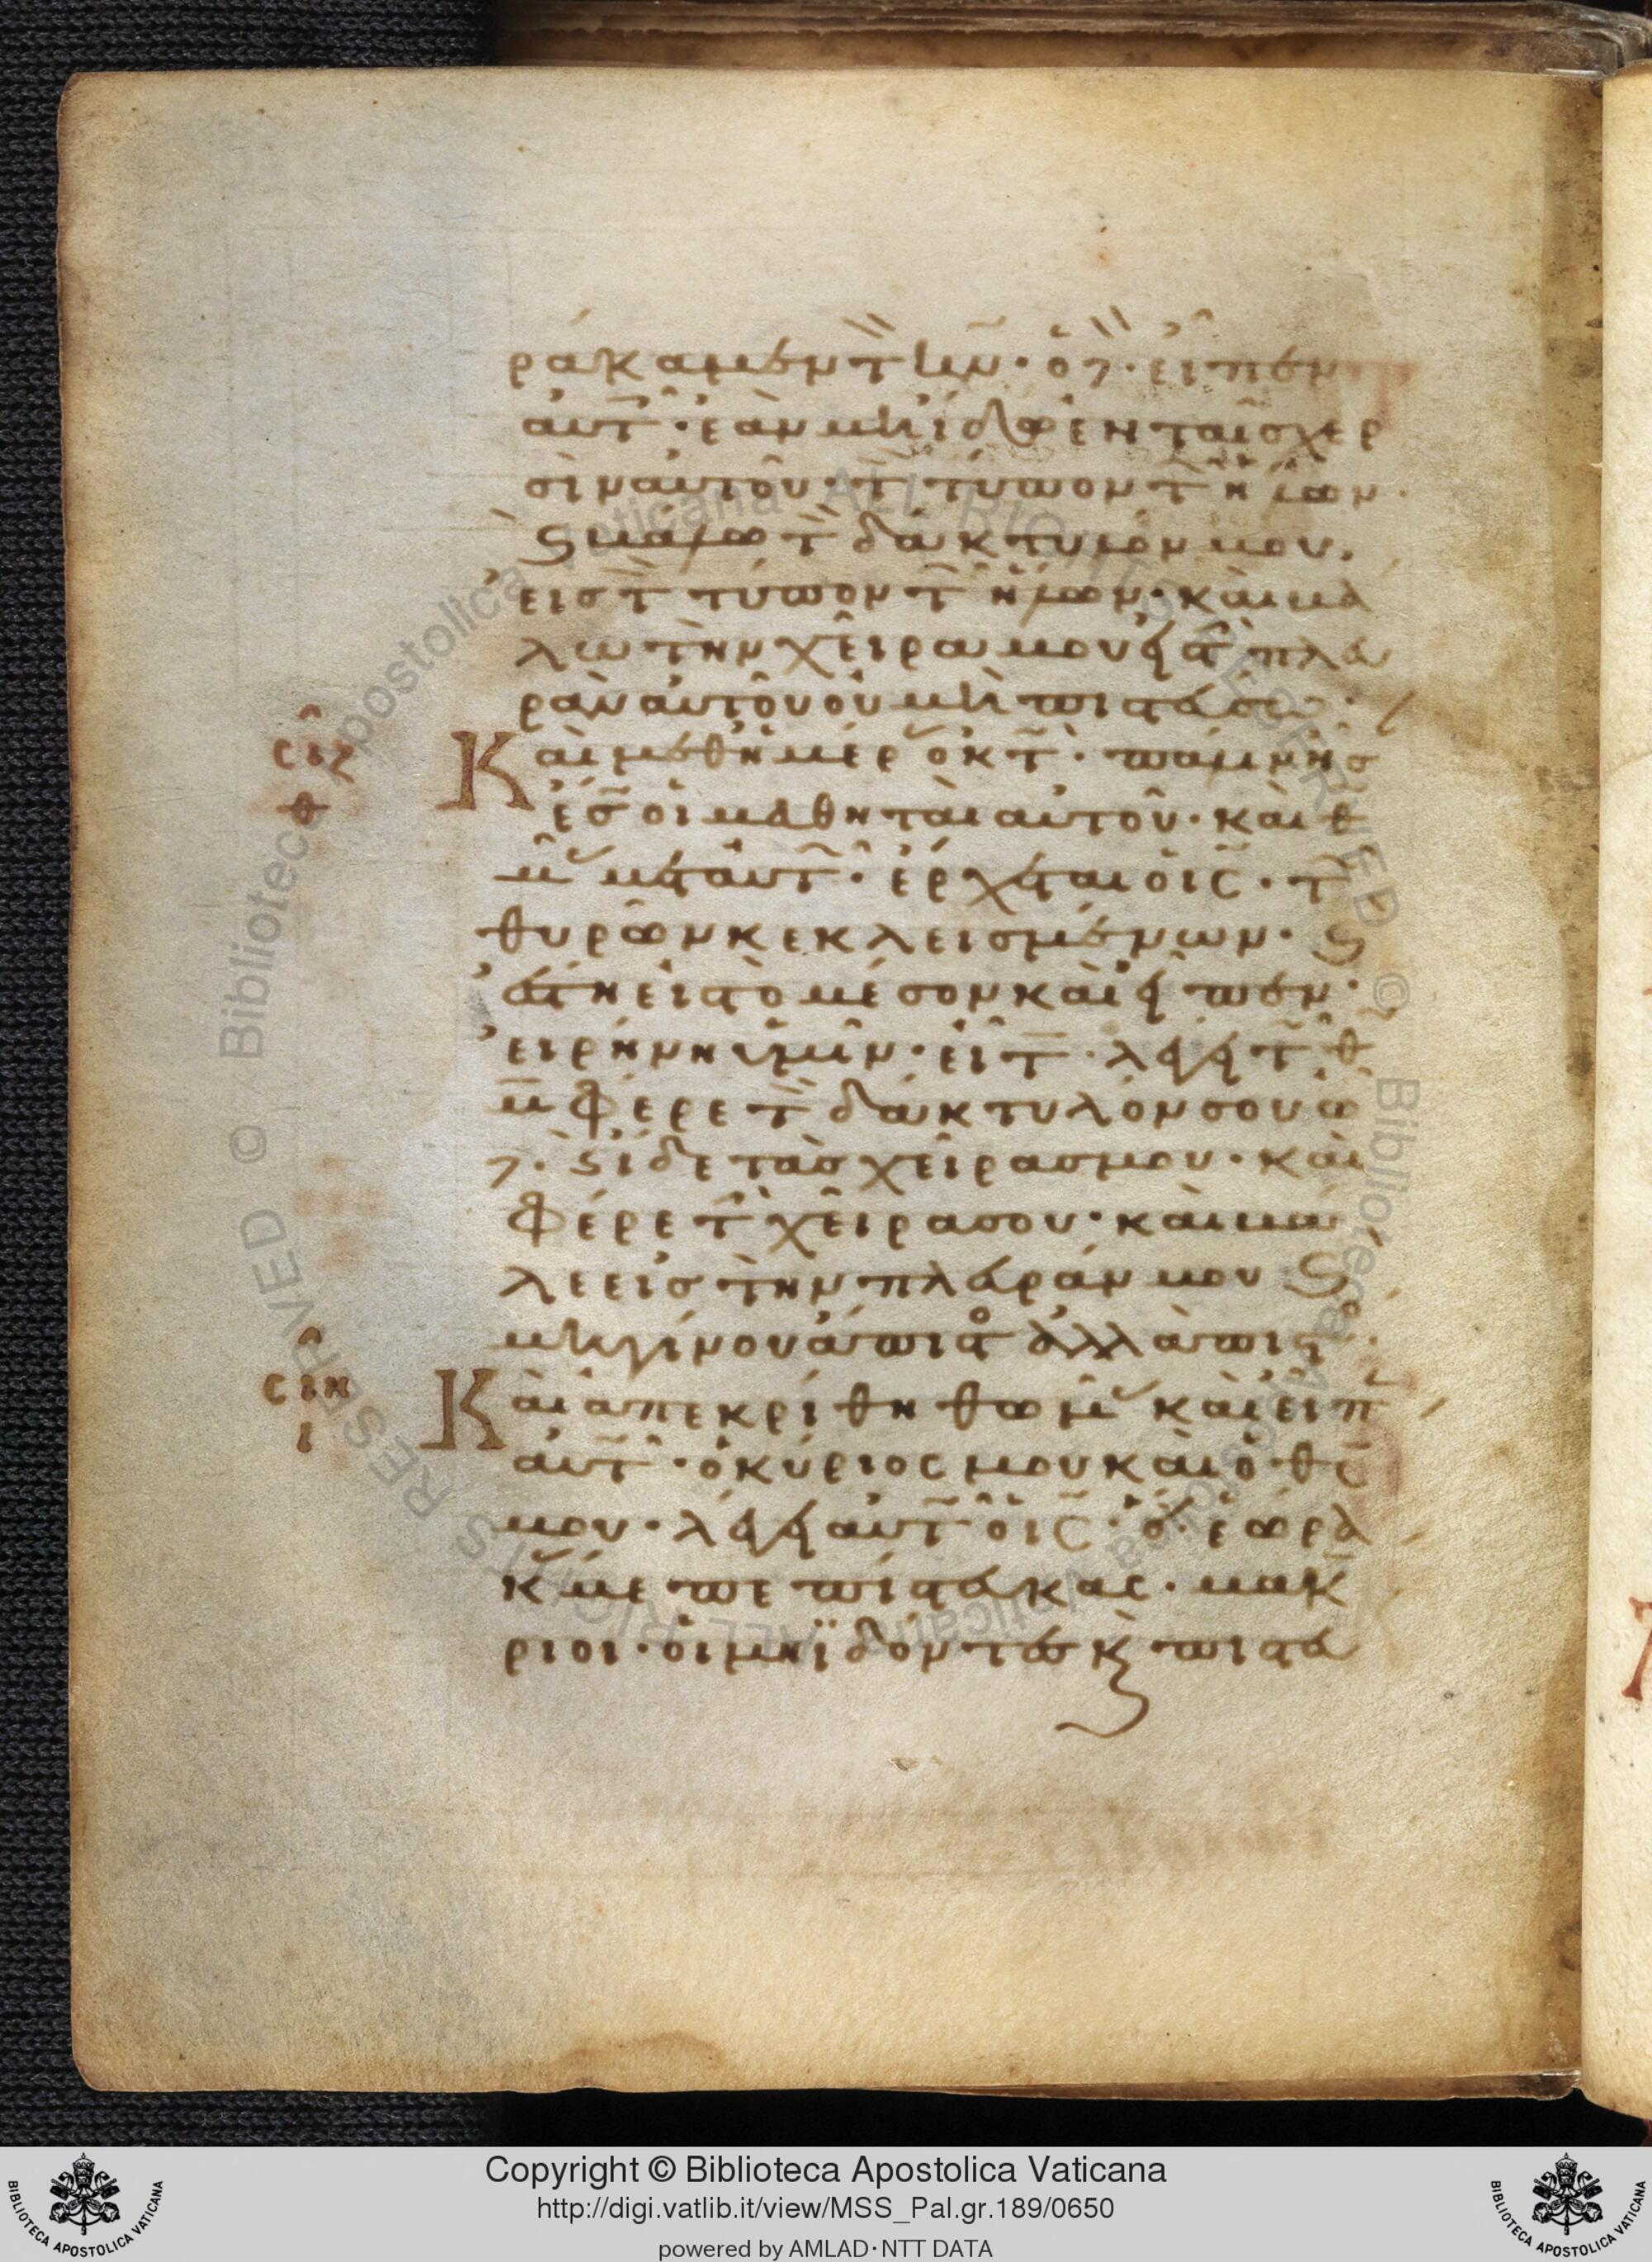 ράκαμεν τ κν · ὁ δ · εἶπεν
αὐτ · ἐὰν μὴ ἴδω ἐν ταῖσ χερ
σὶν αὐτοῦ · τ τύπον τ ήλων ·
ϛ βάλω τ δάκτυλόν μου,
εἰσ τ τύπον τ ήλων · καὶ βά
λω τὴν χεῖρα μου εἰσ τ πλευ
ρὰν αὐτοῦ οὐ μὴ πιστεύσω ·
σιζ
θ
Καὶ μεθ ἡμέρ ὀκτ · πάλιν ἦσ
ἔσ οἱ μαθηταὶ αὐτοῦ · καὶ θ
μ μετ αὐτ · ἔρχεται ὁ ις · τ
θυρῶν κεκλεισμένων · ϛ
ἔστη εἰσ τὸ μέσον καὶ εἶπεν ·
εἰρήνη ὑμῖν · εἶτ · λέγει τ θ
μ φέρε τ δάκτυλόν σου ὧ
δ · ϛ ἴδε τὰσ χεῖρασ μου · καὶ
φέρε τ χεῖρα σου · καὶ βά
λε εἰσ τὴν πλευράν μου ϛ
μὴ γίνου ἄπιστο ἀλλὰ πιστο ·
σιη
ι
Καὶ ἀπεκρίθη θωμ καὶ εἶπ
αὐτ · ὁ κύριος μου καὶ ὁ θς
μου · λέγει αὐτ ὁ ις · ὅτι ἑώρα
κ με πεπίστευκας · μακά
ριοι · οἱ μὴ ϊδόντεσ κ πιστεύ
Copyright © Biblioteca Apostolica Vaticana
http://digi.vatlib.it/view/MSS_Pal.gr.189/0650
powered by AMLAD · NTT DATA
BIBLIOTECA APOSTOLICA VATICANA
BIBLIOTECA APOSTOLICA VATICANA